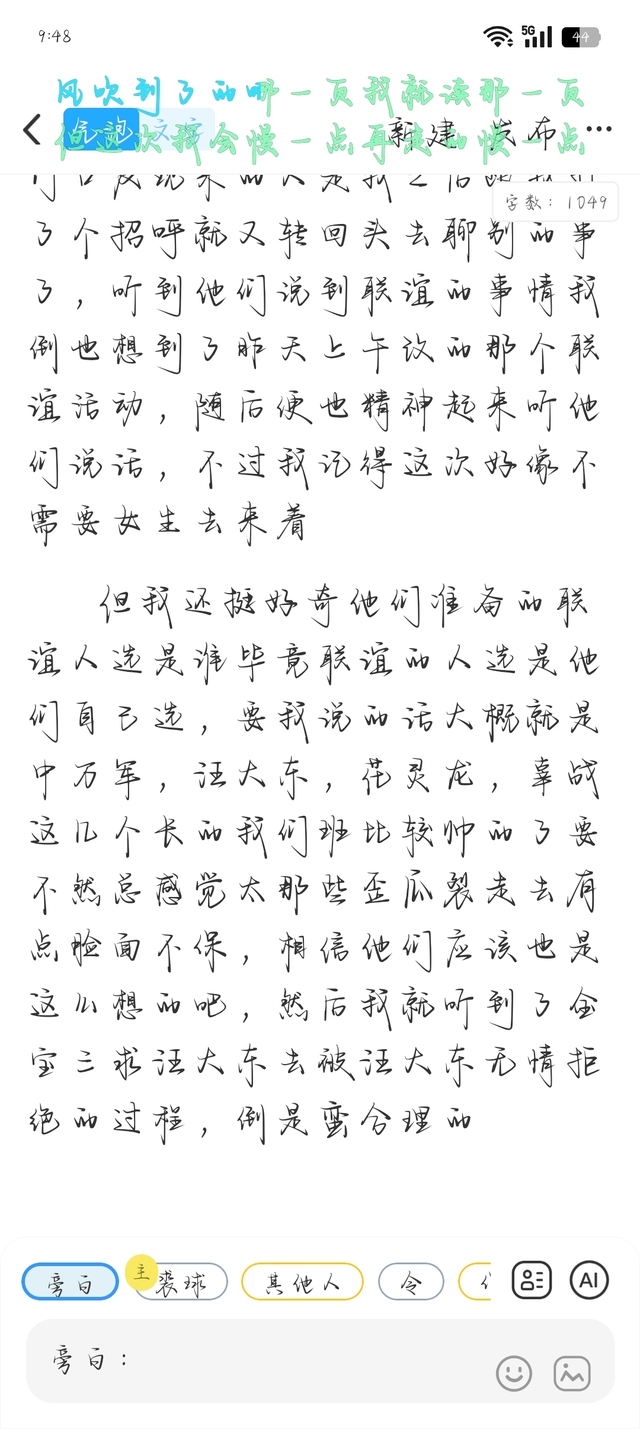 9:48
5G
44
风吹到了的哪一页我就读那一页
气泡 文字 新建 发布 ...
但这次我会慢一点再慢一点
字数：1049
了个招呼就又转回头去聊别的事
了，听到他们说到联谊的事情我
倒也想到了昨天上午说的那个联
谊活动，随后便也精神起来听他
们说话，不过我记得这次好像不
需要女生去来着
但我还挺好奇他们准备的联
谊人选是谁毕竟联谊的人选是他
们自己选，要我说的话大概就是
中万军，汪大东，花灵龙，辜战
这几个长的我们班比较帅的了要
不然总感觉太那些歪瓜裂走去有
点脸面不保，相信他们应该也是
这么想的吧，然后我就听到了金
宝三求汪大东去被汪大东无情拒
绝的过程，倒是蛮合理的
旁白 主 裘球 其他人 令
AI
旁白：